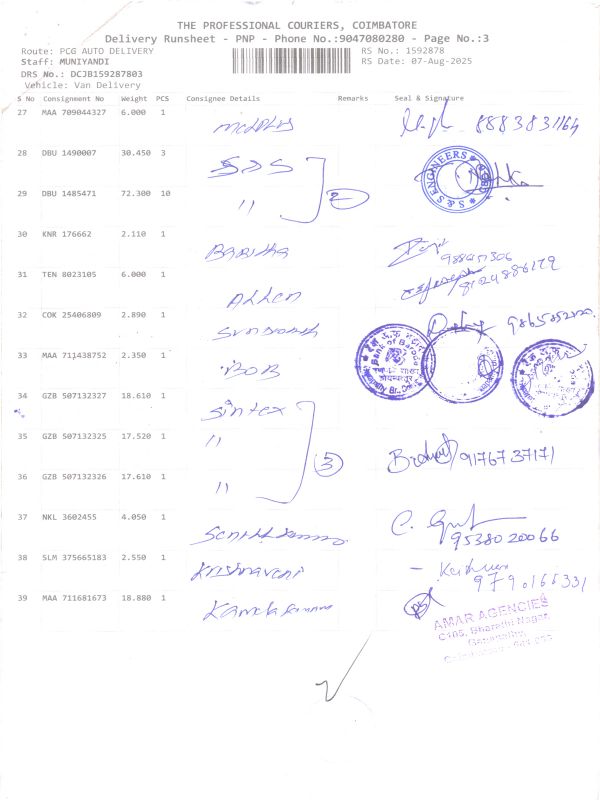 THE PROFESSIONAL COURIERS, COIMBATORE
Delivery Runsheet - PNP - Phone No.:9047080280 - Page No.:3
Route: PCG AUTO DELIVERY RS No.: 1592878
Staff: MUNIYANDI RS Date: 07-Aug-2025
DRS No.: DCJB159287803
Vehicle: Van Delivery
S No Consignment No Weight PCS Consignee Details Remarks Seal & Signature
27 MAA 709044327 6.000 1 8883831164
28 DBU 1490007 30.450 3 S&S S & S ENGINEERS
29 DBU 1485471 72.300 10 " 2
30 KNR 176662 2.110 1
31 TEN 8023105 6.000 1 Allen 8124886179
32 COK 25406809 2.890 1
33 MAA 711438752 2.350 1 BOB Bank of Baroda
34 GZB 507132327 18.610 1 Sintex
35 GZB 507132325 17.520 1 " 3 9176737171
36 GZB 507132326 17.610 1 "
37 NKL 3602455 4.050 1 9538020066
38 SLM 375665183 2.550 1 Krishnaveni 9790165331
39 MAA 711681673 18.880 1
AMAR AGENCIES
C105, Bharathi Nagar,
Ganapathy,